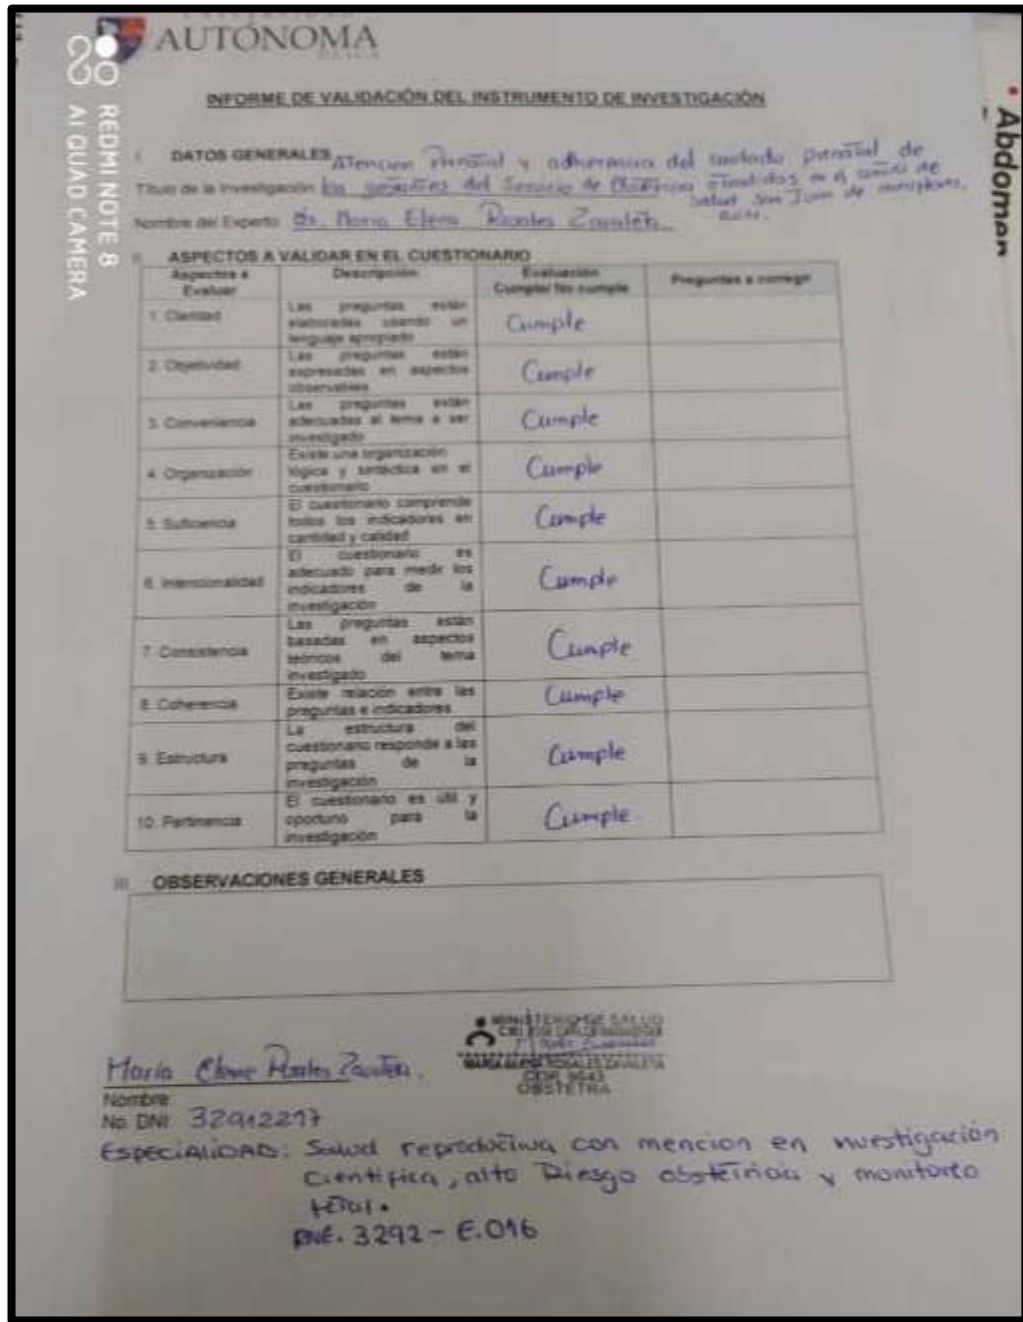 AUTÓNOMA
REDMI NOTE 8
AI QUAD CAMERA
• Abdomen
INFORME DE VALIDACIÓN DEL INSTRUMENTO DE INVESTIGACIÓN
I DATOS GENERALES
Atencion Prenatal y adherencia del cuidado prenatal de
Título de la Investigación: las gestantes del Servicio de Obstetricia atendidas en el centro de
salud San Juan de
Nombre del Experto: Maria Elena Rosales Zavaleta
II ASPECTOS A VALIDAR EN EL CUESTIONARIO
Aspectos a Evaluar Descripción Evaluación Cumple/ No cumple Preguntas a corregir
1. Claridad Las preguntas están elaboradas usando un lenguaje apropiado Cumple
2. Objetividad Las preguntas están expresadas en aspectos observables Cumple
3. Conveniencia Las preguntas están adecuadas al tema a ser investigado Cumple
4. Organización Existe una organización lógica y sintáctica en el cuestionario Cumple
5. Suficiencia El cuestionario comprende todos los indicadores en cantidad y calidad Cumple
6. Intencionalidad El cuestionario es adecuado para medir los indicadores de la investigación Cumple
7. Consistencia Las preguntas están basadas en aspectos teóricos del tema investigado Cumple
8. Coherencia Existe relación entre las preguntas e indicadores Cumple
9. Estructura La estructura del cuestionario responde a las preguntas de la investigación Cumple
10. Pertinencia El cuestionario es útil y oportuno para la investigación Cumple
III OBSERVACIONES GENERALES
MINISTERIO DE SALUD
MARIA ELENA ROSALES ZAVALETA
OBSTETRA
Maria Elena Rosales Zavaleta.
Nombre
No. DNI 32912217
ESPECIALIDAD: Salud reproductiva con mencion en investigación
Cientifica, alto Riesgo obstetrico y monitoreo
fetal.
RNE. 3292 - E.016